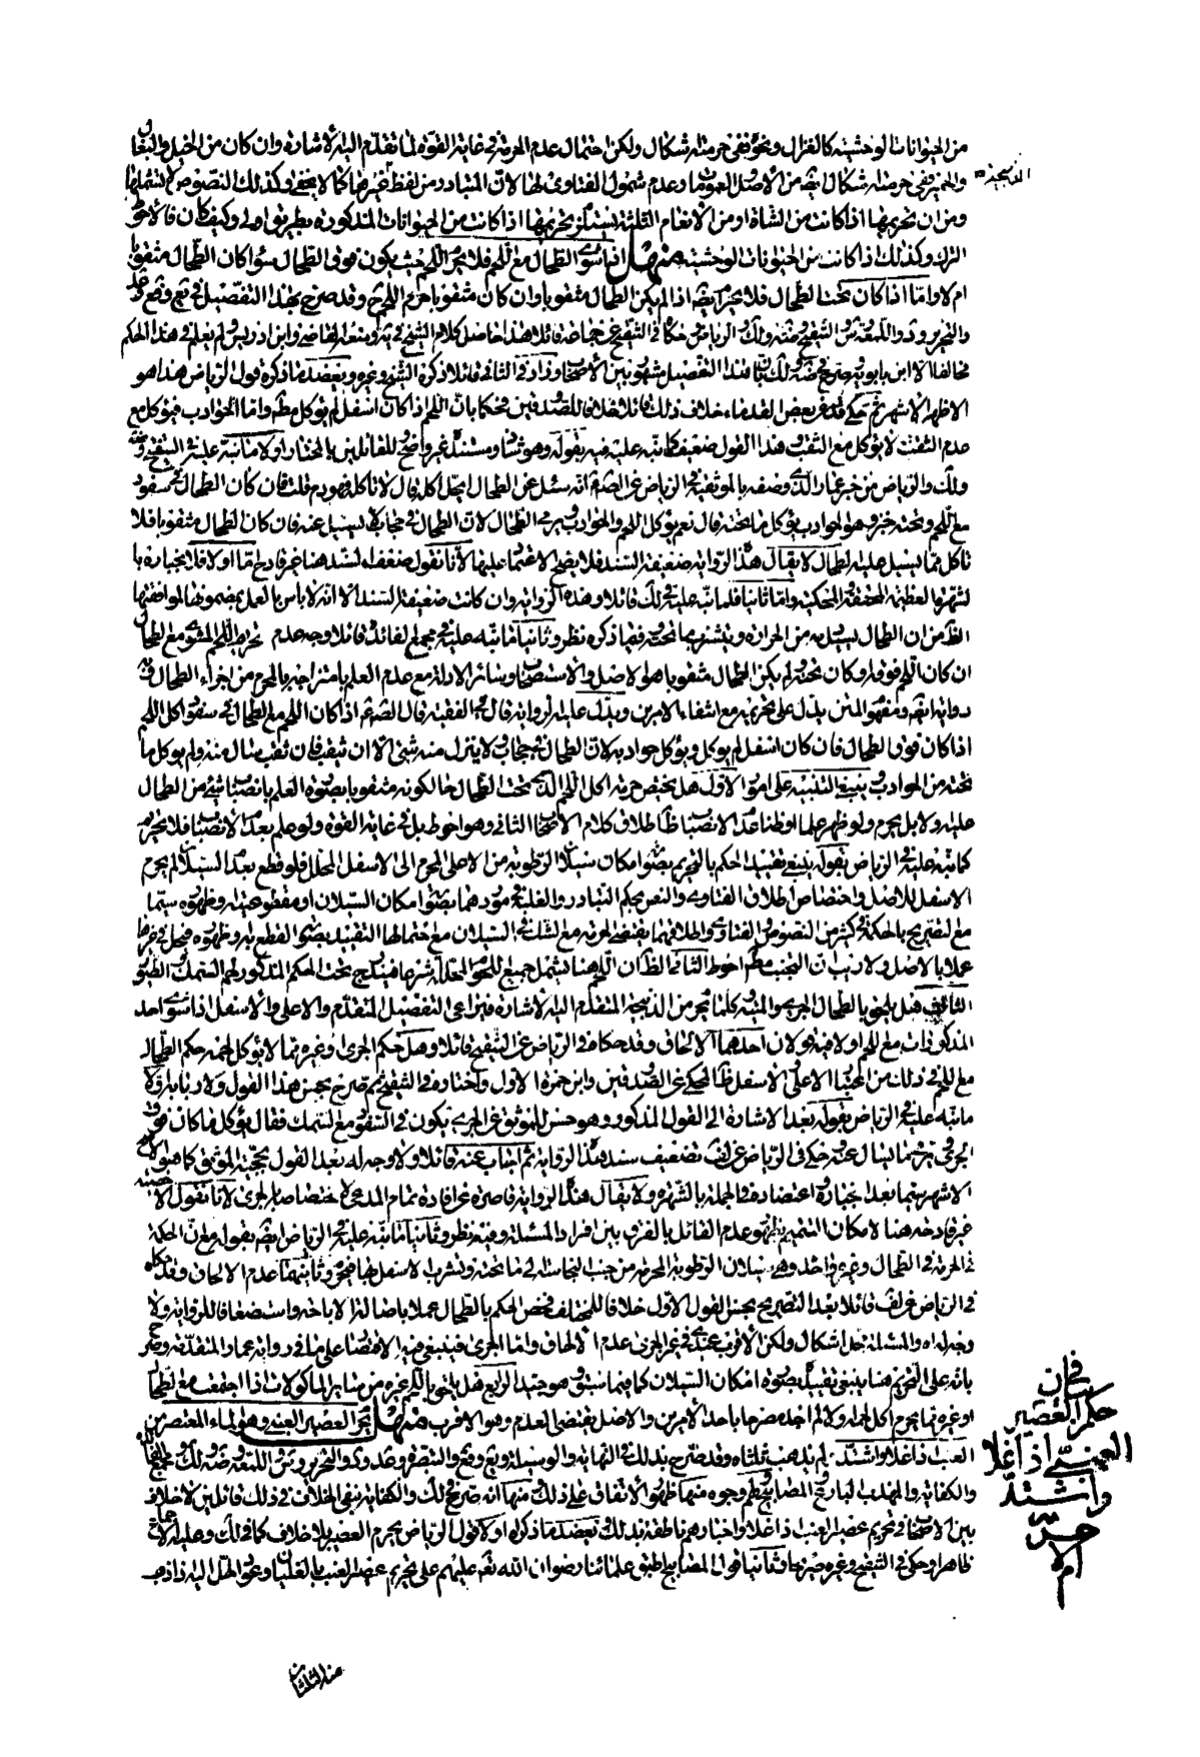 من الحيوانات الوحشية كالغزال ونحوه ففي حرمته اشكال ولكن احتمال عدم الحرمة في غاية القوة لما تقدم اليه الاشارة وان كان من الخيل والبغال
والحمير ففي حرمته اشكال ايضا من الاصل العمومات وعدم شمول الفتاوى لها لان المتبادر من لفظ غيرها كما لا يخفى وكذلك النصوص لا تشملها
ومن ان تحريمها اذا كانت من الشاة او من الانعام الثلثة يستلزم تحريمها اذا كانت من الحيوانات المذكورة بطريق اولى وكيف كان فالاحوط
الترك وكذلك اذا كانت من الحيوانات الوحشية منهل اذا شوى الطحال مع اللحم فلا يحرم اللحم حيث يكون فوق الطحال سواء كان الطحال مثقوبا
ام لا واما اذا كان تحت الطحال فلا يحرم ايضا اذا لم يكن الطحال مثقوبا وان كان مثقوبا حرم اللحم وقد صرح بهذا التفصيل في يع وفع وعد
والتحرير ود واللمعة وس والتنقيح وضه ولك والرياض وحكاه في التنقيح عن جماعة قائلا هذا حاصل كلام الشيخ في يه وتبعه القاضي وابن ادريس ولم نعلم في هذا الحكم
مخالفا الا ابن بابويه وصرح في ضه ولك بان هذا التفصيل مشهور بين الاصحاب وزاد في الثاني قائلا ذكره الشيخ وغيره ويعضد ما ذكره قول الرياض هذا هو
الاظهر الاشهر ثم حكى قده عن بعض القدماء خلاف ذلك قائلا خلافا للصدوقين فحكما بان اللحم اذا كان اسفل لم يؤكل مطلقا واما الجواذب فيؤكل مع
عدم الثقب لا يؤكل مع الثقب وهذا القول ضعيف كما نبه عليه فيه بقوله وهو شاذ ومستنده غير واضح للقائلين بالمختار اولا ما نبه عليه في التنقيح وضه
ولك والرياض من خبر عمار الذي وصفه بالموثقية في الرياض عن الصادق انه سئل عن الطحال ايحل اكله قال لا تاكله فهو دم قلت فان كان الطحال في سفود
مع اللحم وتحته خبز وهو الجواذب يؤكل ما تحته قال نعم يؤكل اللحم والجواذب ويرمى الطحال لان الطحال في حجاب لا يسيل عنه فان كان الطحال مثقوبا فلا
تاكل مما يسيل عليه الطحال لا يقال هذه الرواية ضعيفة السند فلا يصلح الاعتماد عليها لانا نقول ضعف السند هنا غير قادح اما اولا فلانجباره با
لشهرة العظيمة المحققة والمحكية واما ثانيا فلما نبه عليه في لك قائلا وهذه الرواية وان كانت ضعيفة السند الا انه لا باس بالعمل بمضمونها لموافقتها
الظ من ان الطحال يسيل دمه من الحرارة ويتشربه ما تحته ففيما ذكره نظر وثانيا ما نبه عليه في مجمع الفائدة قائلا وجه عدم تحريم اللحم المشوي مع الطحال
ان كان اللحم فوقه او كان تحته ولم يكن الطحال مثقوبا هو الاصل والاستصحاب وسائر الادلة مع عدم العلم بامتزاجه بالمحرم من اجزاء الطحال وفي
رواية ايضا ومفهوم المتن يدل على تحريمه مع انتفاء الامرين ويدل عليه رواية قال في الفقيه قال الصادق ع اذا كان اللحم مع الطحال في سفود اكل اللحم
اذا كان فوق الطحال فان كان اسفل لم يؤكل ويؤكل جوادبه لان الطحال في حجاب ولا ينزل منه شئ الا ان يثقب فان ثقب سال منه ولم يؤكل ما
تحته من الجواذب ينبغي التنبيه على امور الاول هل يختص حرمة اكل اللحم الذي تحت الطحال حال كونه مثقوبا بصورة العلم بانصباب شئ من الطحال
عليه ولا بل يحرم ولو ظهر علما او ظنا عدم الانصباب ظاهر اطلاق كلام الاصحاب الثاني وهو احوط بل في غاية القوة ولو علم بعدم الانصباب فلا يحرم
كما نبه عليه في الرياض بقوله ينبغي تقييد الحكم بالتحريم بصورة امكان سيلان الرطوبة من الاعلى المحرم الى الاسفل المحلل فلو قطع بعدم السيلان لم يحرم
الاسفل للاصل واختصاص اطلاق الفتاوى والنص بحكم التبادر والغلبة في موردهما بصورة امكان السيلان او مقطوعيته وظهوره سيما
مع التصريح بالحكمة في كثير من النصوص والفتاوى واطلاقهما يقتضي الحرمة مع الشك في السيلان مع احتمالها التقييد بصورة القطع به وظهوره فيحل في غيرها
عملا بالاصل ولا ريب ان التجنب مطلقا احوط الثاني الظ ان اللحم هنا يشمل جميع اللحوم المحللة شرعا فيندرج تحت الحكم المذكور لحم السمك والطيور
الثالث هل يلحق بالطحال الجري والميتة وكلما يحرم من الذبيحة المتقدم اليه الاشارة فيراعى التفصيل المتقدم والاعلى والاسفل اذا شوى احد
المذكورات مع اللحم اولا فيه قولان احدهما الالحاق وقد حكاه في الرياض عن التنقيح قائلا وهل حكم الجري وغيره مما لا يؤكل لحمه حكم الطحال
مع اللحم في ذلك من اعتبار الاعلى والاسفل ظ المحكي عن الصدوقين وابن حمزة الاول واختاره في التنقيح ثم صرح بحسن هذا القول ولا ريب
ما نبه عليه في الرياض بقوله بعد الاشارة الى القول المذكور وهو حسن للموثق عن الجري يكون في السفود مع السمك فقال يؤكل ما كان فوق
الجري ويرمى ما سال عنه وحكى في الرياض عن لف تضعيف سند هذه الرواية ثم اجاب عنه قائلا ولا وجه له بعد القول بحجية الموثق كما هو
الاشهر سيما بعد انجباره او اعتضاده في الجملة بالشهرة ولا يقال هذه الرواية قاصرة عن افادة تمام المدعى لاختصاصها بالجري لانا نقول
غير قادحة هنا لامكان التتميم بظهور عدم القائل بالفرق بين افراد المسئلة وفيه نظر وثانيا ما نبه عليه في الرياض ايضا بقوله مع ان الحكمة
في الحرمة في الطحال وغيره واحدة وهي سيلان الرطوبة المحرمة من حيث النجاسة الى ما تحته وتشرب الاسفل لها فيحرم وثانيهما عدم الالحاق وقد حكاه
في الرياض عن لف قائلا بعد التصريح بحسن القول الاول خلافا للمختلف فخص الحكم بالطحال عملا باصالة الاباحة واستضعافا للرواية ولا
وجه له والمسئلة محل اشكال ولكن الاقرب عندي في غير الجري عدم الالحاق واما الجري فينبغي فيه الاقتصار على ما في رواية عمار المتقدمة وصرح
بانه على التحريم هنا ينبغي تقييده بصورة امكان السيلان كما فيما سبق وهو جيد الرابع هل يلحق باللحم غيره من سائر الماكولات اذا اجتمعت مع الطحال
او غيره مما يحرم اكله اولا لم اجد مصرحا باحد الامرين والاصل يقتضي العدم وهو الاقرب منهل يحرم العصير العنبي وهو الماء المعتصر من
العنب اذا غلا واشتد ولم يذهب ثلثاه وقد صرح بذلك في النهاية والوسيلة ويع وفع والتبصرة وعد ود والتحرير وس واللمعة وضه ولك ومجمع الفائدة
والكفاية والمهذب البارع والمصابيح ولهم وجوه منها ظهور الاتفاق على ذلك منها انه صرح في لك والكفاية بنفي الخلاف في ذلك قائلين لا خلاف
بين الاصحاب في تحريم عصير العنب اذا غلا واخبارهم ناطقة بذلك ويعضد ما ذكراه اولا قول الرياض يحرم العصير بلا خلاف كما في لك وعليه الاجماع
ظاهرا وحكى في التنقيح وغيره صريحا وثانيا قول المصابيح اطبق علمائنا رضوان الله تعالى عليهم على تحريم عصير العنب بالغليان وعود الحل اليه اذا ذهب
منه الثلثان
في
حكم العصير
العنبي اذا غلا
واشتد
حرّ
ام لا